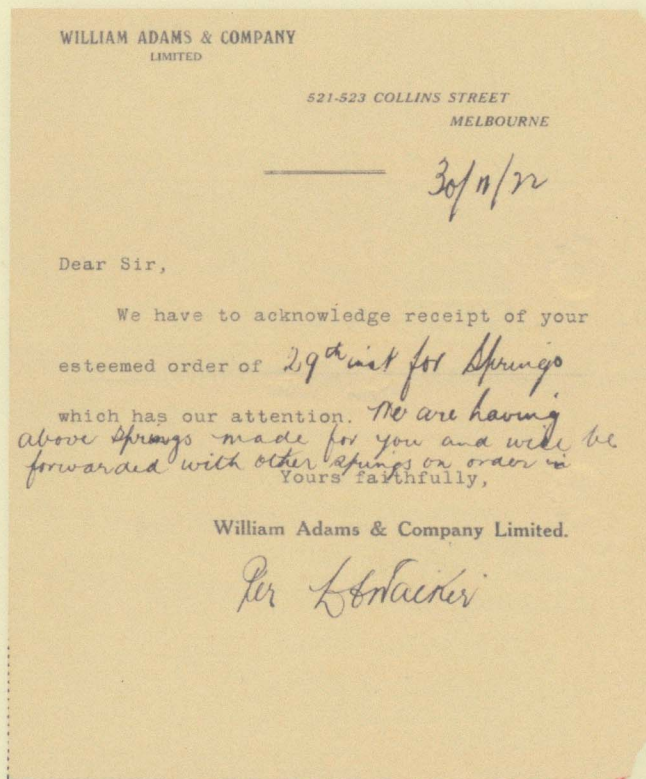 WILLIAM ADAMS & COMPANY
LIMITED
521-523 COLLINS STREET
MELBOURNE
30/11/22
Dear Sir,
We have to acknowledge receipt of your
esteemed order of 29th inst for Springs
which has our attention. We are having
above springs made for you and will be
forwarded with other springs on order
Yours faithfully,
William Adams & Company Limited.
Per